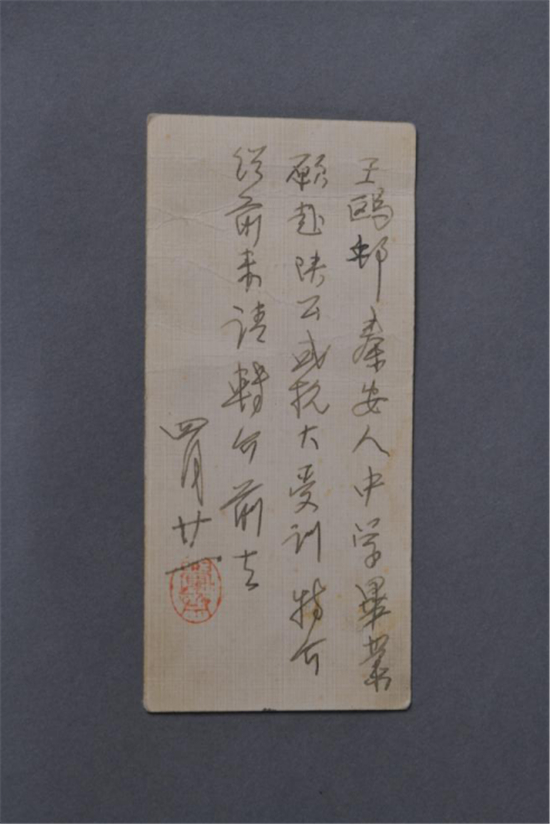 王鸥邨秦安人中学畢業
願赴陕公或抗大受训特介
绍前来请轉介前去
四月廿